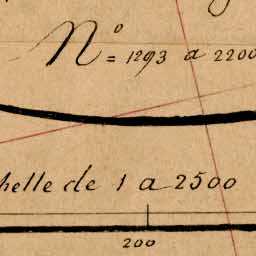 N° = 1293 a 2200
helle de 1 a 2500
200